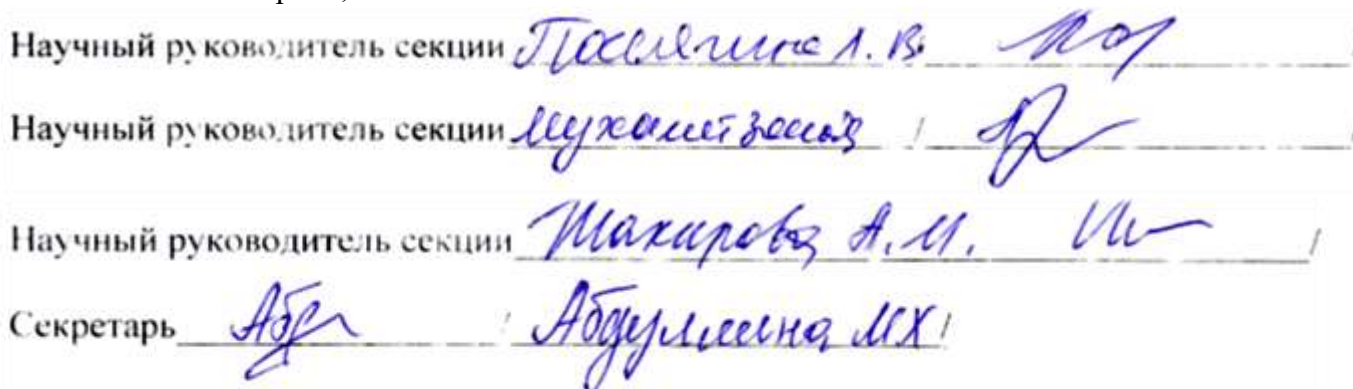 Научный руководитель секции Поселягина Л. В.
Научный руководитель секции Мухаметзянов
Научный руководитель секции Шакирова А. М.
Секретарь Абдуллина МХ